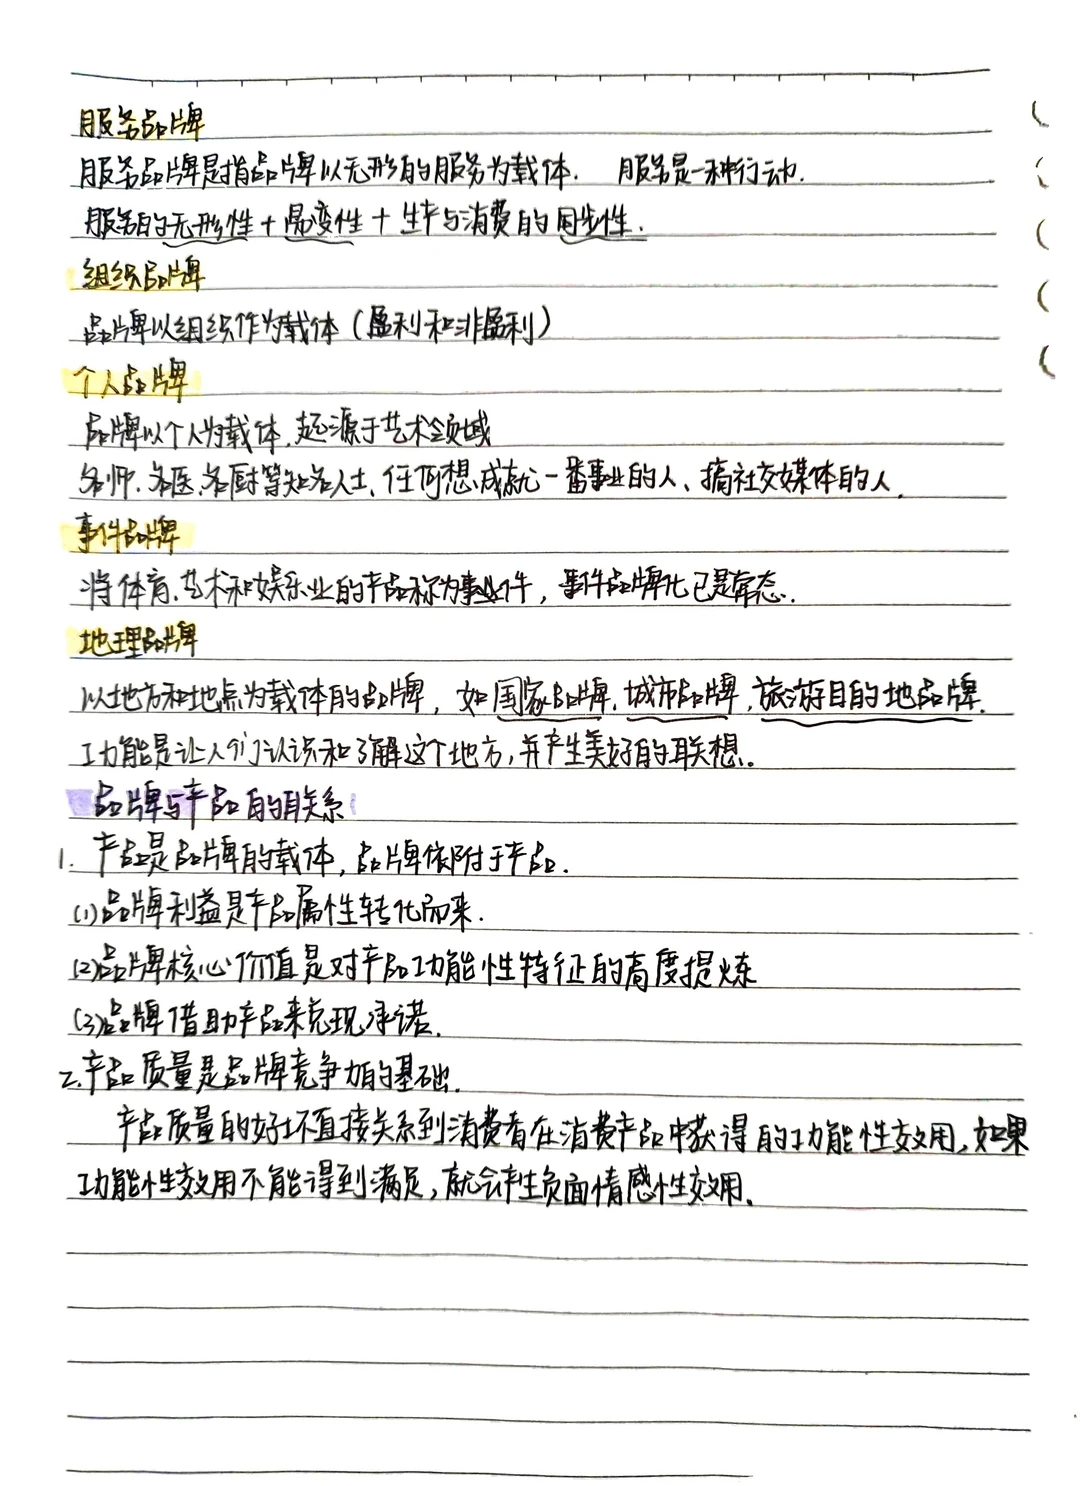 服务品牌
服务品牌是指品牌以无形的服务为载体. 服务是一种行动.
服务的无形性+易变性+生产与消费的同步性.
组织品牌
品牌以组织作为载体(盈利和非盈利)
个人品牌
品牌以个人为载体,起源于艺术领域
名师、名医、名厨等知名人士、任何想成就一番事业的人、搞社交媒体的人.
事件品牌
将体育、艺术和娱乐业的产品称为事件,事件品牌化已是常态.
地理品牌
以地方和地点为载体的品牌,如国家品牌.城市品牌,旅游目的地品牌.
功能是让人们认识和了解这个地方,并产生美好的联想。
品牌与产品的联系
1. 产品是品牌的载体,品牌依附于产品.
(1)品牌利益是产品属性转化而来.
(2)品牌核心价值是对产品功能性特征的高度提炼
(3)品牌借助产品来兑现承诺.
2.产品质量是品牌竞争力的基础.
产品质量的好坏直接关系到消费者在消费产品中获得的功能性效用,如果
功能性效用不能得到满足,就会产生负面情感性效用。